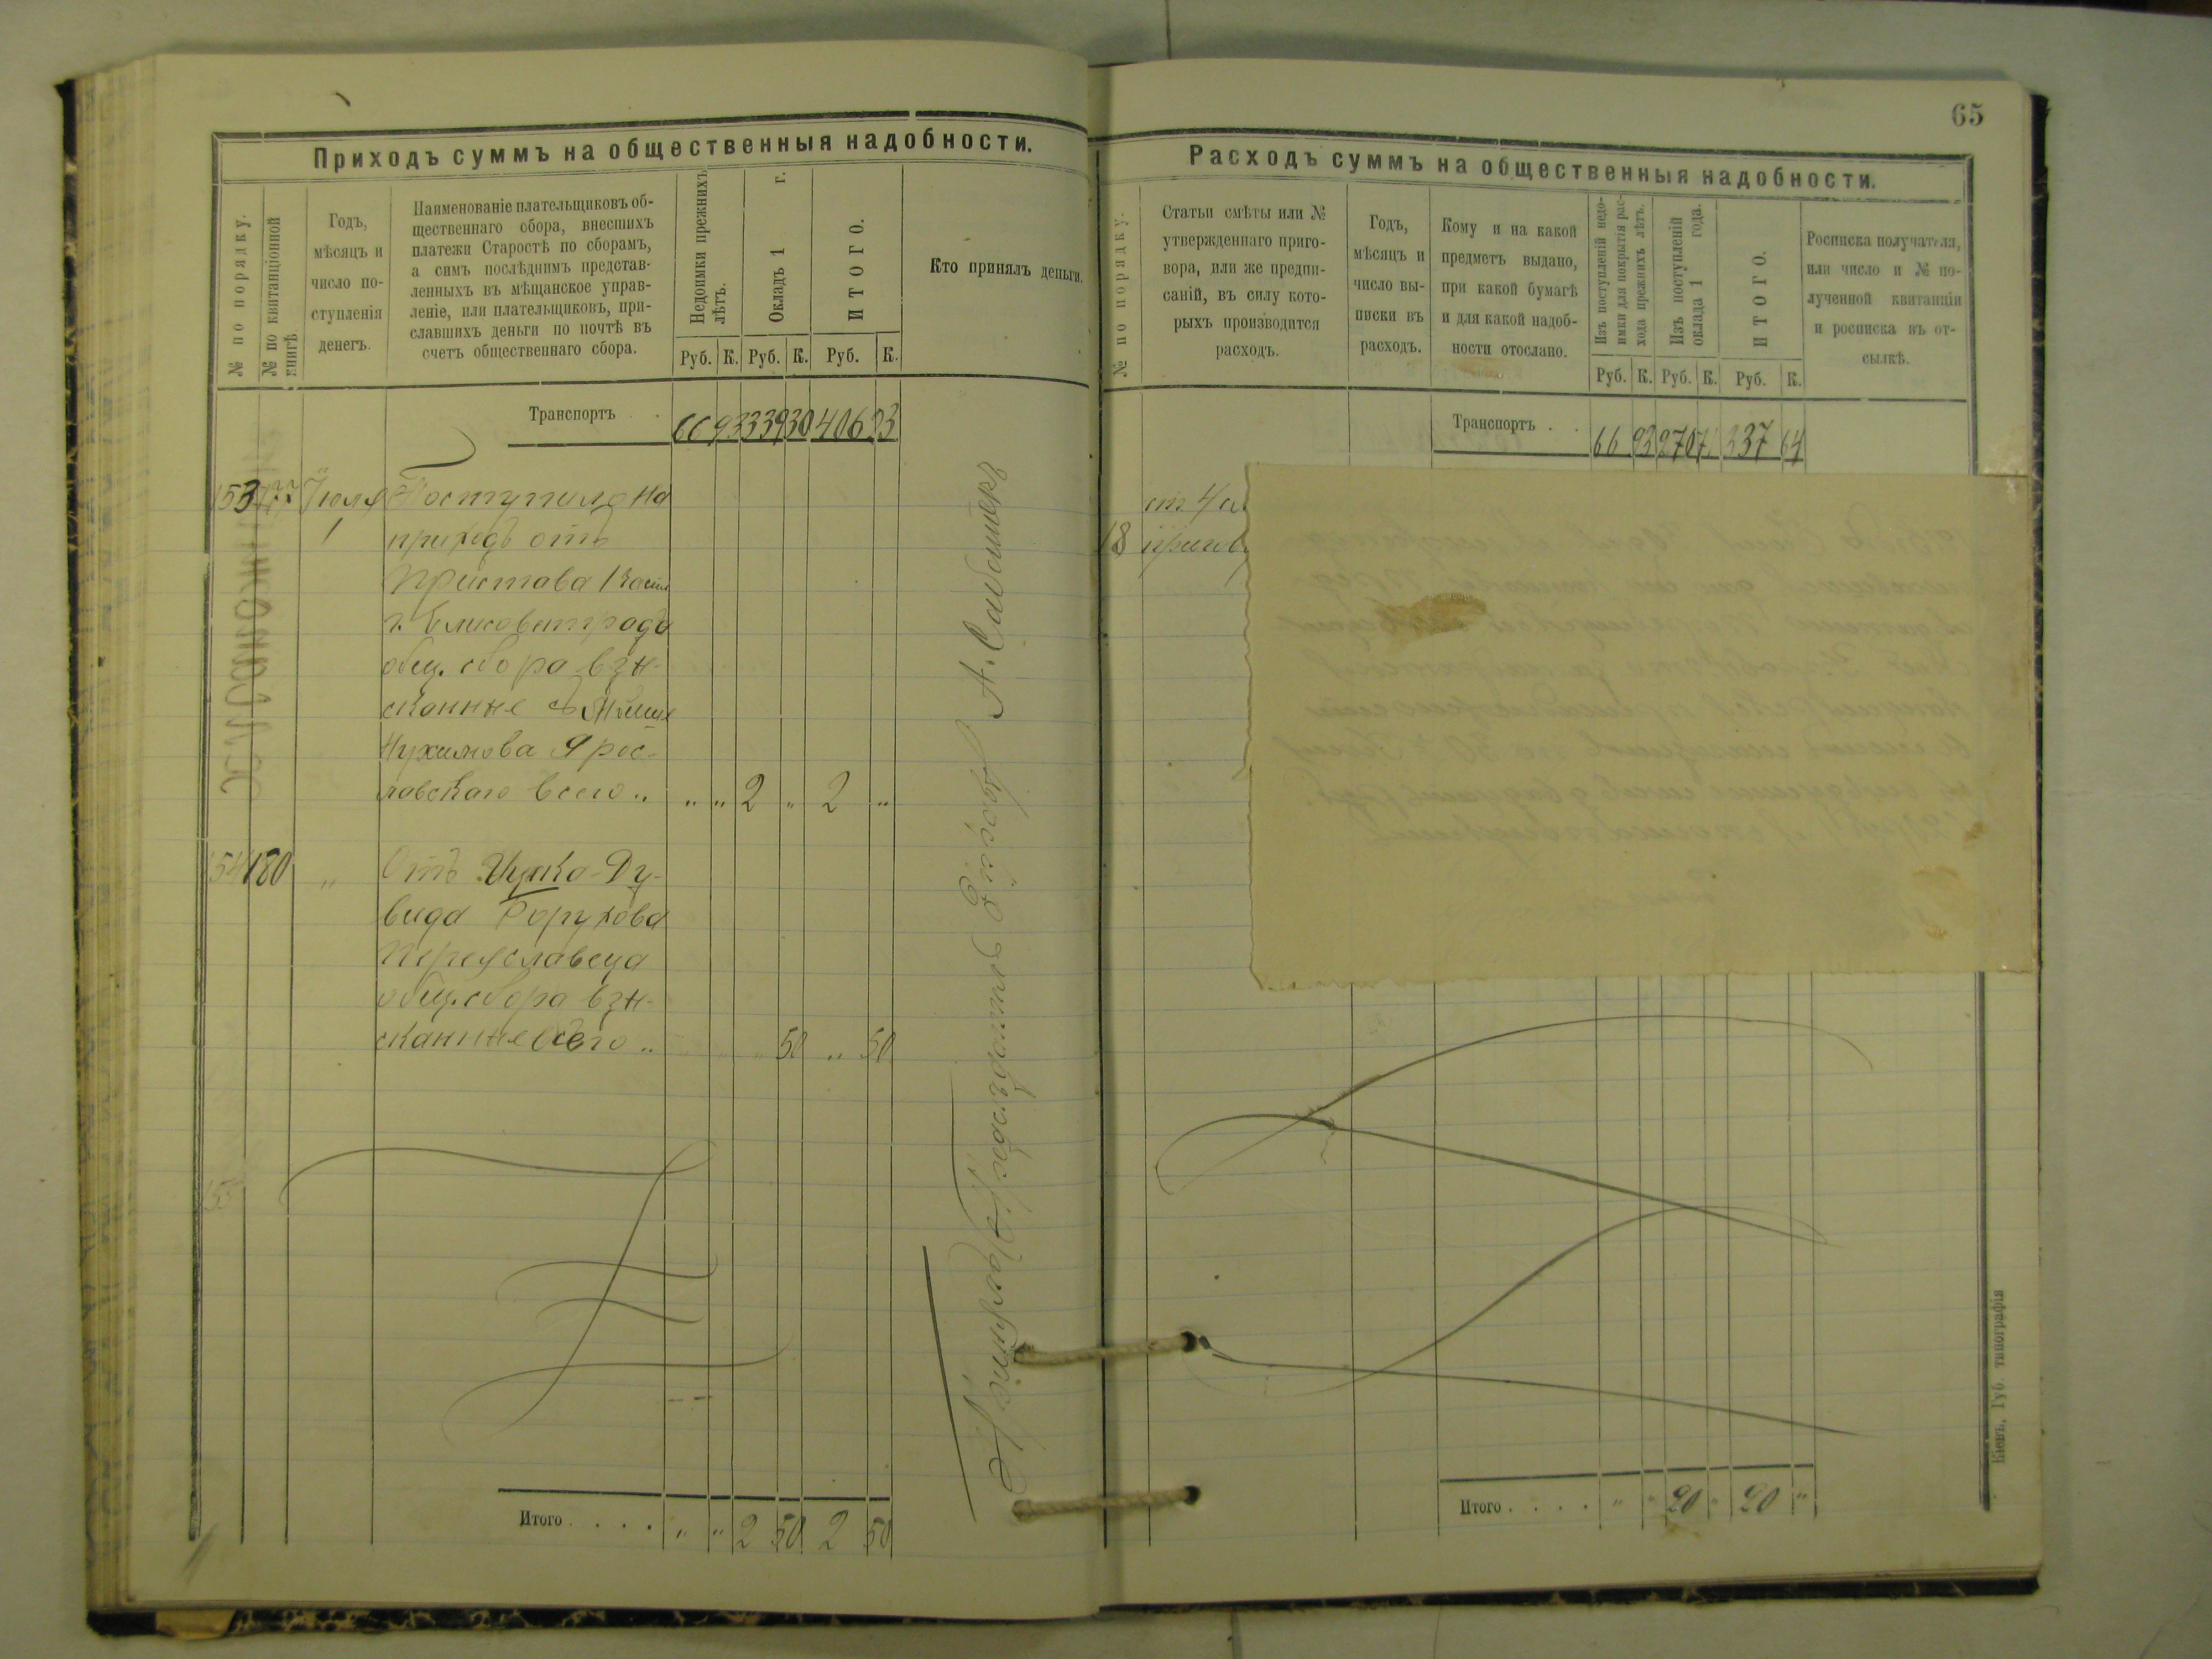 65
Приходъ суммъ на общественныя надобности.
№ по порядку.
№ по квитанціонной
книгѣ
Годъ,
мѣсяцъ и
число по-
ступленія
денегъ.
Наименованіе плательщиковъ об-
щественнаго сбора, внесшихъ
платежи Старостѣ по сборамъ,
а симъ послѣднимъ представ-
ленныхъ въ мѣщанское управ-
леніе, или плательщиковъ, при-
славшихъ деньги по почтѣ въ
счетъ общественнаго сбора.
Недоимки прежнихъ
лѣтъ.
Окладъ 1 г.
ИТОГО.
Руб. К. Руб. К. Руб. К.
Кто принялъ деньги.
Транспортъ . . 66 93 339 30 406 23
153 Іюля Поступило на
1 приходъ отъ
Пристава 1 части
г. Елисаветграда
общ. сбора взы-
сканные съ
Нухимова Ярос-
лавскаго всего „ „ „ 2 „ 2 „
154 180 „ Отъ Ицка-Ду-
вида Борухова
Переяславца
общ. сбора взы-
сканные всего „ „ 50 „ 50
155
Итого . . . . „ „ 2 50 2 50
Расходъ суммъ на общественныя надобности.
№ по порядку.
Статьи смѣты или №
утвержденнаго приго-
вора, или же предпи-
саній, въ силу кото-
рыхъ производится
расходъ.
Годъ,
мѣсяцъ и
число вы-
писки въ
расходъ.
Кому и на какой
предметъ выдано,
при какой бумагѣ
и для какой надоб-
ности отослано.
Изъ поступленій недо-
имки для покрытія рас-
хода прежнихъ лѣтъ.
Изъ поступленій
оклада 1 года.
ИТОГО.
Руб. К. Руб. К. Руб. К.
Росписка получателя,
или число и № по-
лученной квитанціи
и росписка въ от-
сылкѣ.
Транспортъ . . 66 93 270 71 337 64
ст 4
18 пригов
Итого . . . . „ „ 20 „ 20 „
Кіевъ, Губ. типографія